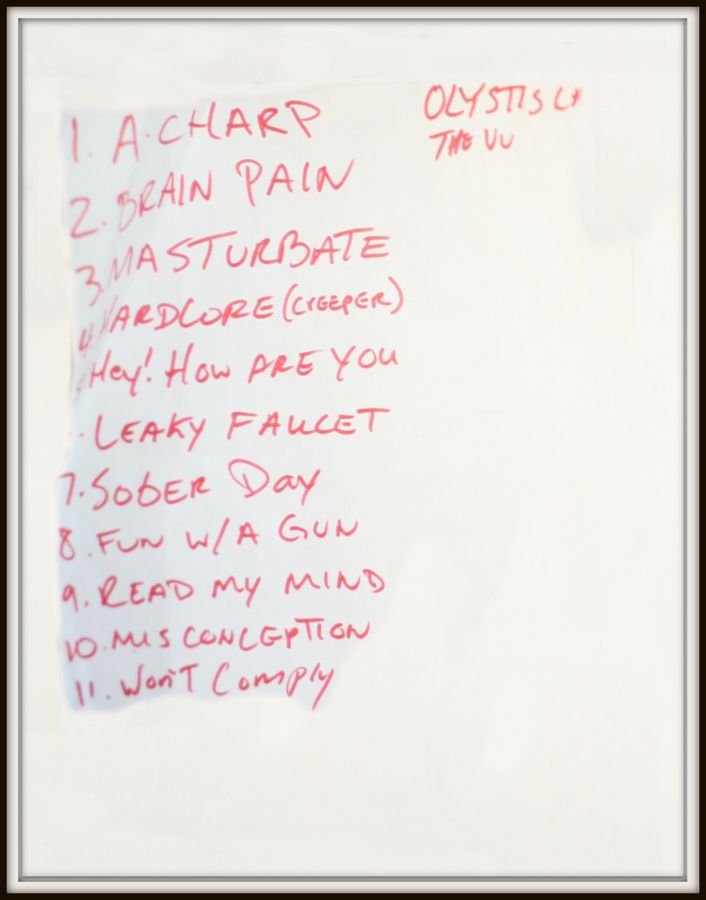 1. A.CHARP
2. BRAIN PAIN
3. MASTURBATE
4. HARDCORE (CREEPER)
Hey! How ARE YOU
LEAKY FAUCET
7. SOBER Day
8. FUN W/A GUN
9. READ MY MIND
10. MISCONCEPTION
11. Won't Comply
THE